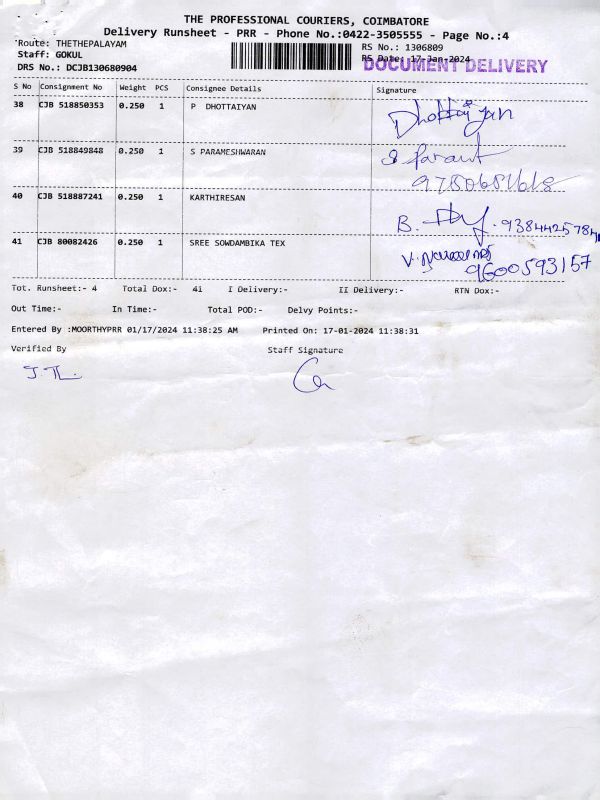 THE PROFESSIONAL COURIERS, COIMBATORE
Delivery Runsheet - PRR - Phone No.:0422-3505555 - Page No.:4
Route: THETHEPALAYAM
RS No.: 1306809
Staff: GOKUL
RS Date: 17-Jan-2024
DOCUMENT DELIVERY
DRS No.: DCJB130680904
S No Consignment No Weight PCS Consignee Details Signature
38 CJB 518850353 0.250 1 P DHOTTAIYAN
39 CJB 518849848 0.250 1 S PARAMESHWARAN
40 CJB 518887241 0.250 1 KARTHIRESAN
B. 9384425784
41 CJB 80082426 0.250 1 SREE SOWDAMBIKA TEX
9600593157
Tot. Runsheet:- 4 Total Dox:- 41 I Delivery:- II Delivery:- RTN Dox:-
Out Time:- In Time:- Total POD:- Delvy Points:-
Entered By :MOORTHYPRR 01/17/2024 11:38:25 AM Printed On: 17-01-2024 11:38:31
Verified By Staff Signature